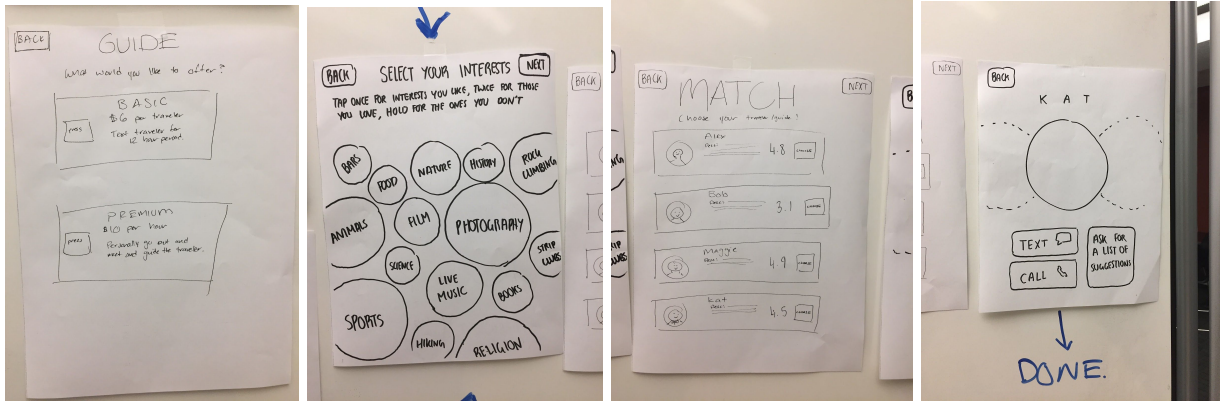 BACK
GUIDE
What would you like to offer?
BASIC
$6 per traveler
Text traveler for
12 hour period.
press
PREMIUM
$10 per hour
Personally go out and
meet and guide the traveler.
press
BACK
SELECT YOUR INTERESTS
NEXT
TAP ONCE FOR INTERESTS YOU LIKE, TWICE FOR THOSE
YOU LOVE, HOLD FOR THE ONES YOU DON'T
BARS
FOOD
NATURE
HISTORY
ROCK
CLIMBING
ANIMALS
FILM
PHOTOGRAPHY
SCIENCE
STRIP
CLUBS
LIVE
MUSIC
BOOKS
SPORTS
HIKING
RELIGION
BACK
MATCH
NEXT
Choose your traveler/guide!
Alex
4.8
Bob
3.1
Maggie
4.9
Kat
4.5
NEXT
BACK
KAT
TEXT
CALL
ASK FOR
A LIST OF
SUGGESTIONS
DONE.